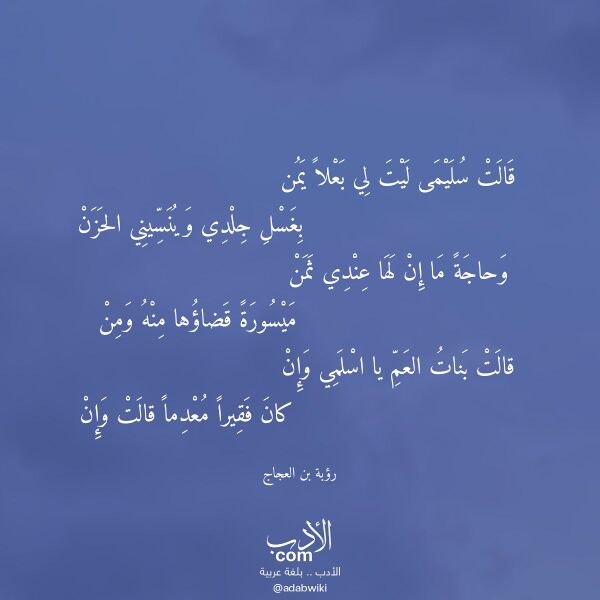 قَالَتْ سُلَيْمَى لَيْتَ لِي بَعْلاً يَمُن
بِغَسْلِ جِلْدِي وَيُنَسِّينِي الحَزَنْ
وَحاجَةً مَا إِنْ لَهَا عِنْدِي ثَمَنْ
مَيْسُورَةً قَضاؤُها مِنْهُ وَمِنْ
قالَتْ بَناتُ العَمِّ يا اسْلَمِي وَإِنْ
كانَ فَقِيراً مُعْدِماً قالَتْ وَإِنْ
رؤبة بن العجاج
الأدب
com
الأدب .. بلغة عربية
@adabwiki